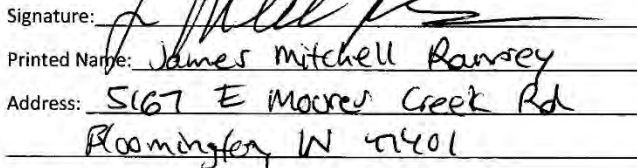 Signature:
Printed Name: James Mitchell Ramsey
Address: 5167 E Moores Creek Rd
Bloomington, IN 47401